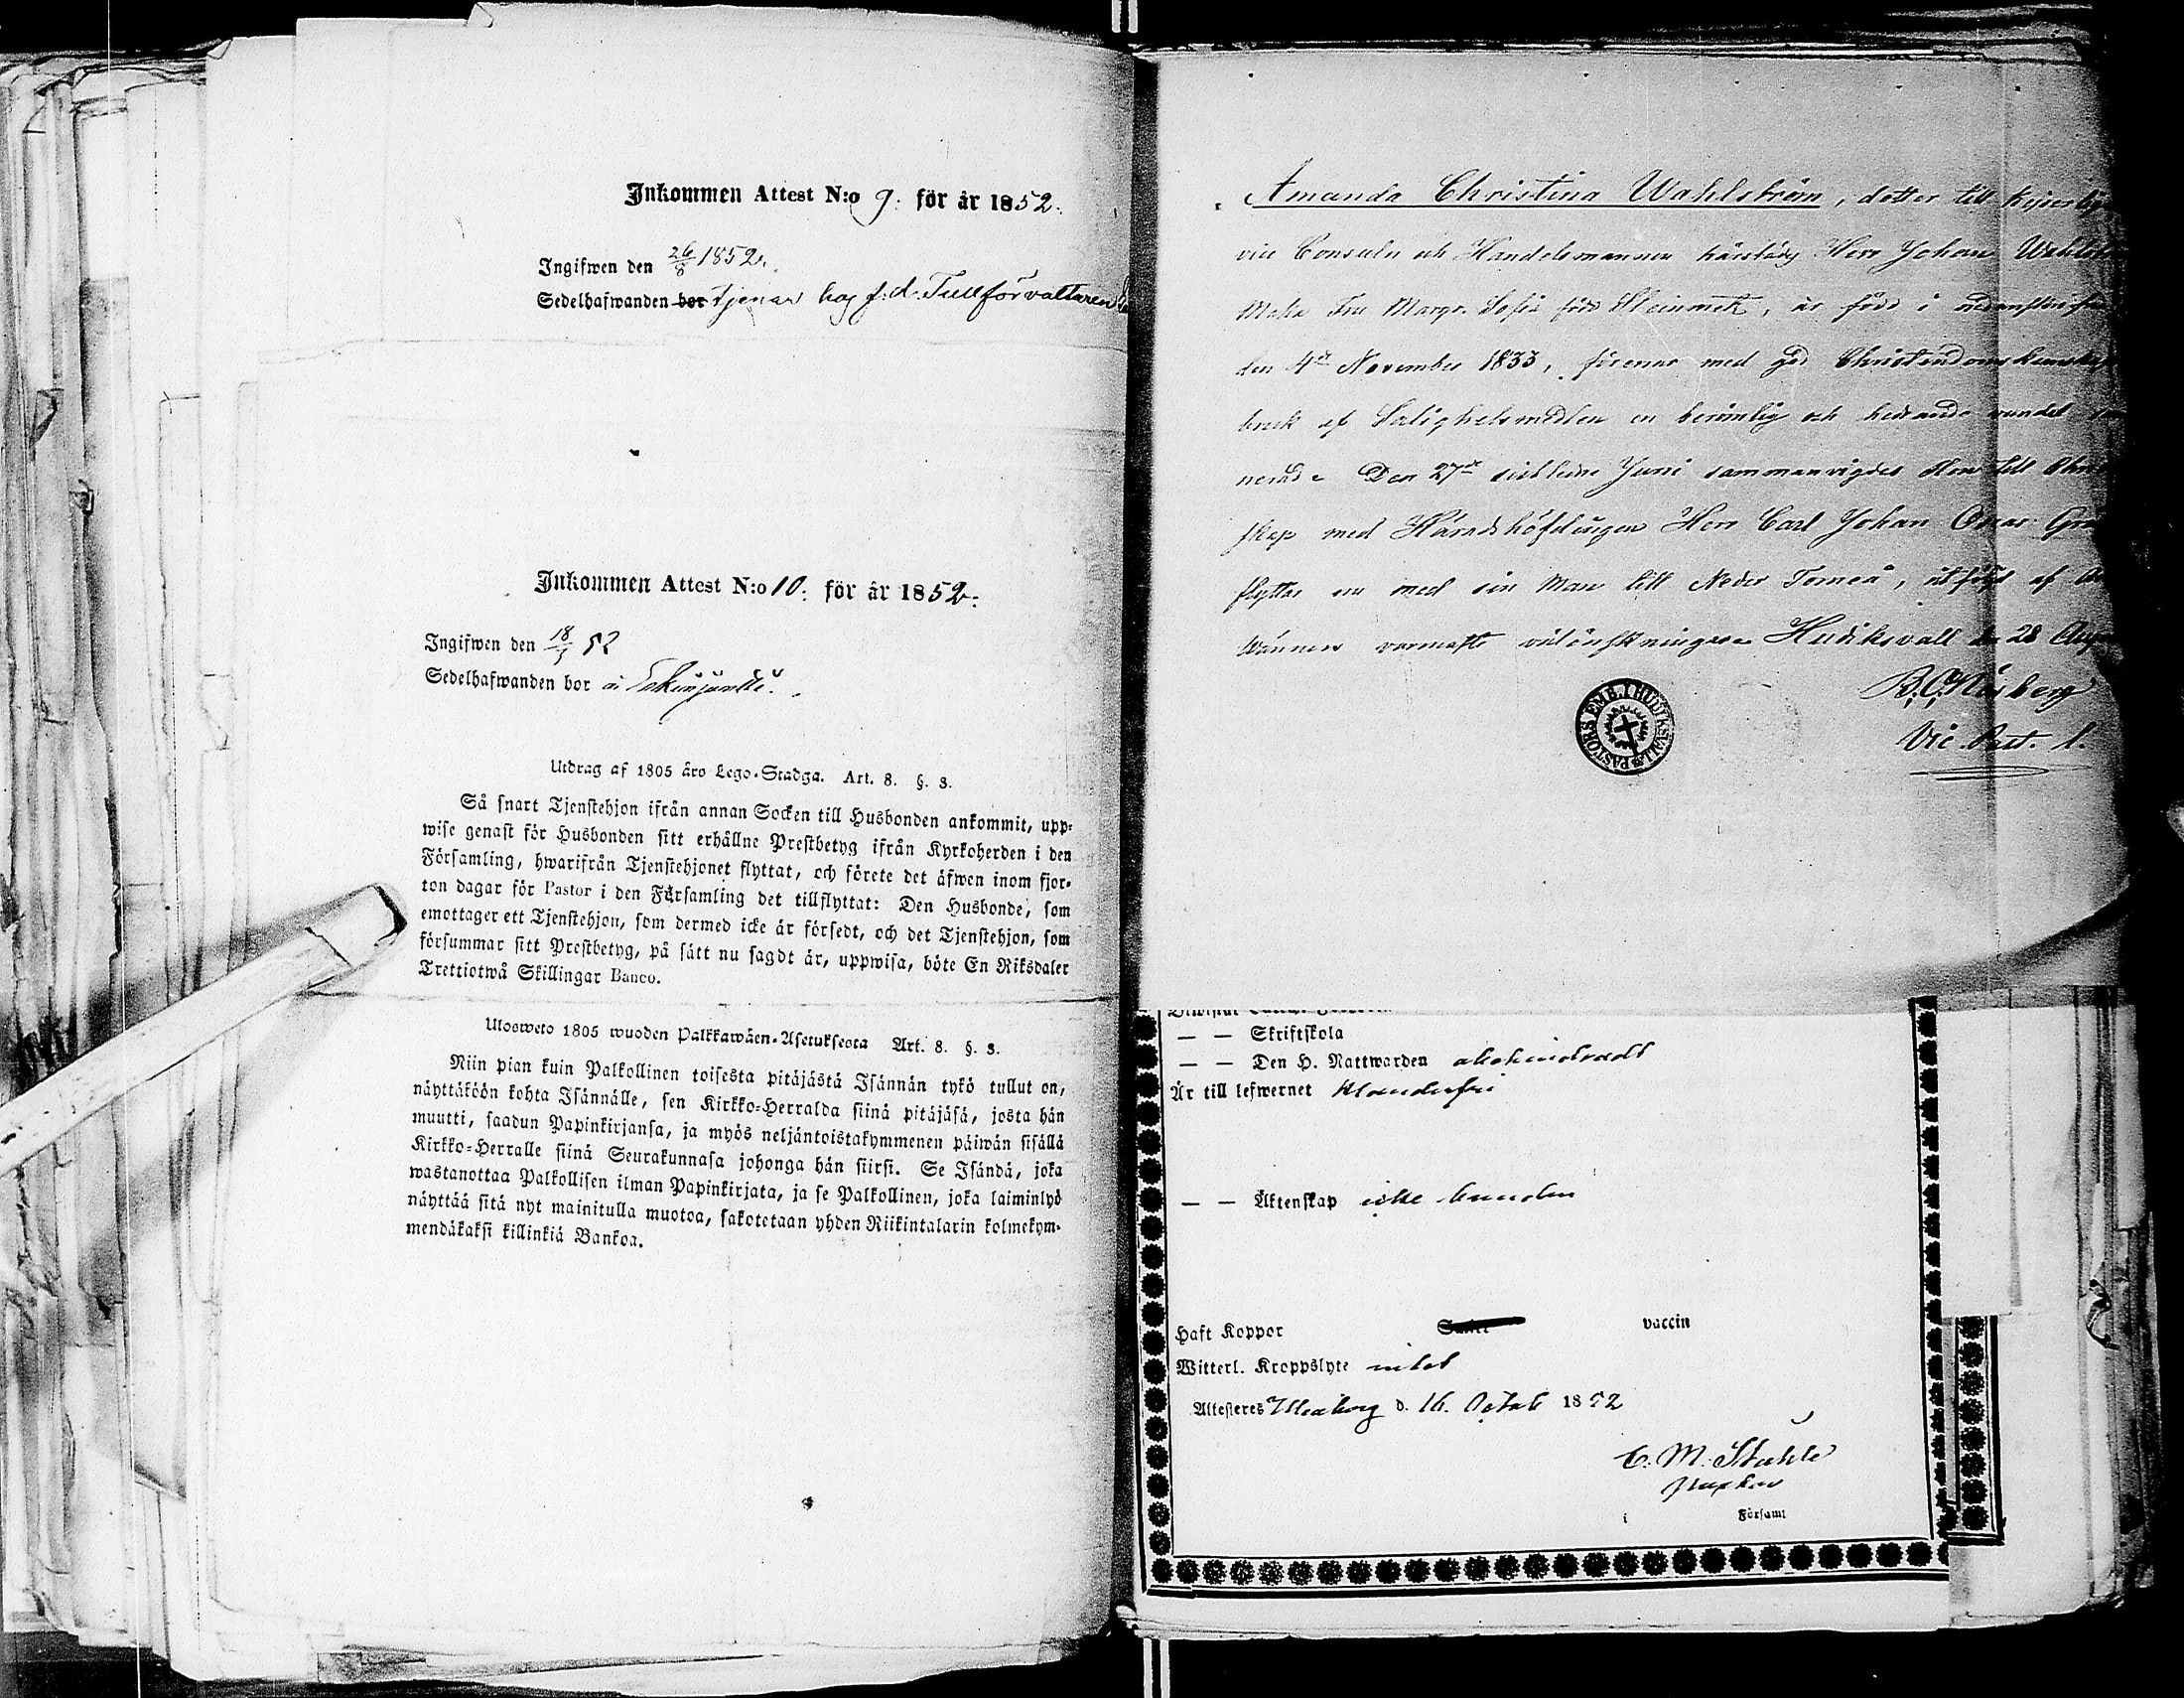 Inkommen Attest N:o 9. för år 1852.
Ingifwen den 26/8 1852.
Sedelhafwanden bor tjenar hos f.d. Tullförvaltaren
Inkommen Attest N:o 10. för år 1852.
Ingifwen den 18/ 52
Sedelhafwanden bor å
Utdrag af 1805 års Lego-Stadga. Art. 8. §. 3.
Så snart Tjenstehjon ifrån annan Socken till Husbonden ankommit, upp-
wise genast för Husbonden sitt erhållne Prestbetyg ifrån Kyrkoherden i den
Församling, hwarifrån Tjenstehjonet flyttat, och förete det äfwen inom fjor-
ton dagar för Pastor i den Församling det tillflyttat: Den Husbonde, som
emottager ett Tjenstehjon, som dermed icke är försedt, och det Tjenstehjon, som
försummar sitt Prestbetyg, på sätt nu sagdt är, uppwisa, böte En Riksdaler
Trettiotwå Skillingar Banco.
Ulosweto 1805 wuoden Palkkawäen-Asetuksesta Art. 8. §. 3.
Niin pian kuin Palkollinen toisesta pitäjästä Isännän tykö tullut on,
näyttäköön kohta Isännälle, sen Kirkko-Herralda siinä pitäjäsä, josta hän
muutti, saadun Papinkirjansa, ja myös neljäntoistakymmenen päiwän sisällä
Kirkko-Herralle siinä Seurakunnasa johonga hän siirsi. Se Isändä, joka
wastanottaa Palkollisen ilman Papinkirjata, ja se Palkollinen, joka laiminlyö
näyttää sitä nyt mainitulla muotoa, sakotetaan yhden Riikintalarin kolmekym-
mendäkaksi killinkiä Bankoa.
Amanda Christina Wahlström, dotter till
vice Consuln och Handelsmannen härstädes Herr Johan
Maka Fru Margr. Sofia född Steinmetz, är född i
den 4de November 1833, förenar med god Christendomskunskap
bruk af Salighetsmedlen en berömlig och hedrande vandel
Den 27de sistledne Juni sammanvigdes Hon till
skap med Häradshöfdingen Herr Carl Johan Oscar
flyttar nu med sin Man till Neder Torneå, åtföljd af
Wänners varmaste välönskningar. Hudiksvall den 28
Vic. Past. l.
PASTORS EMB. I HUDIKSVALL
— — Skriftskola
— — Den H. Nattwarden obehindradt
Är till lefwernet klanderfri
— — Äktenskap icke bunden
Haft Koppor vaccin
Witterl. Kroppslyte intet
Attesteres Uleåborg d. 16. Octob 1852
C. M. Ståhle
i Församl